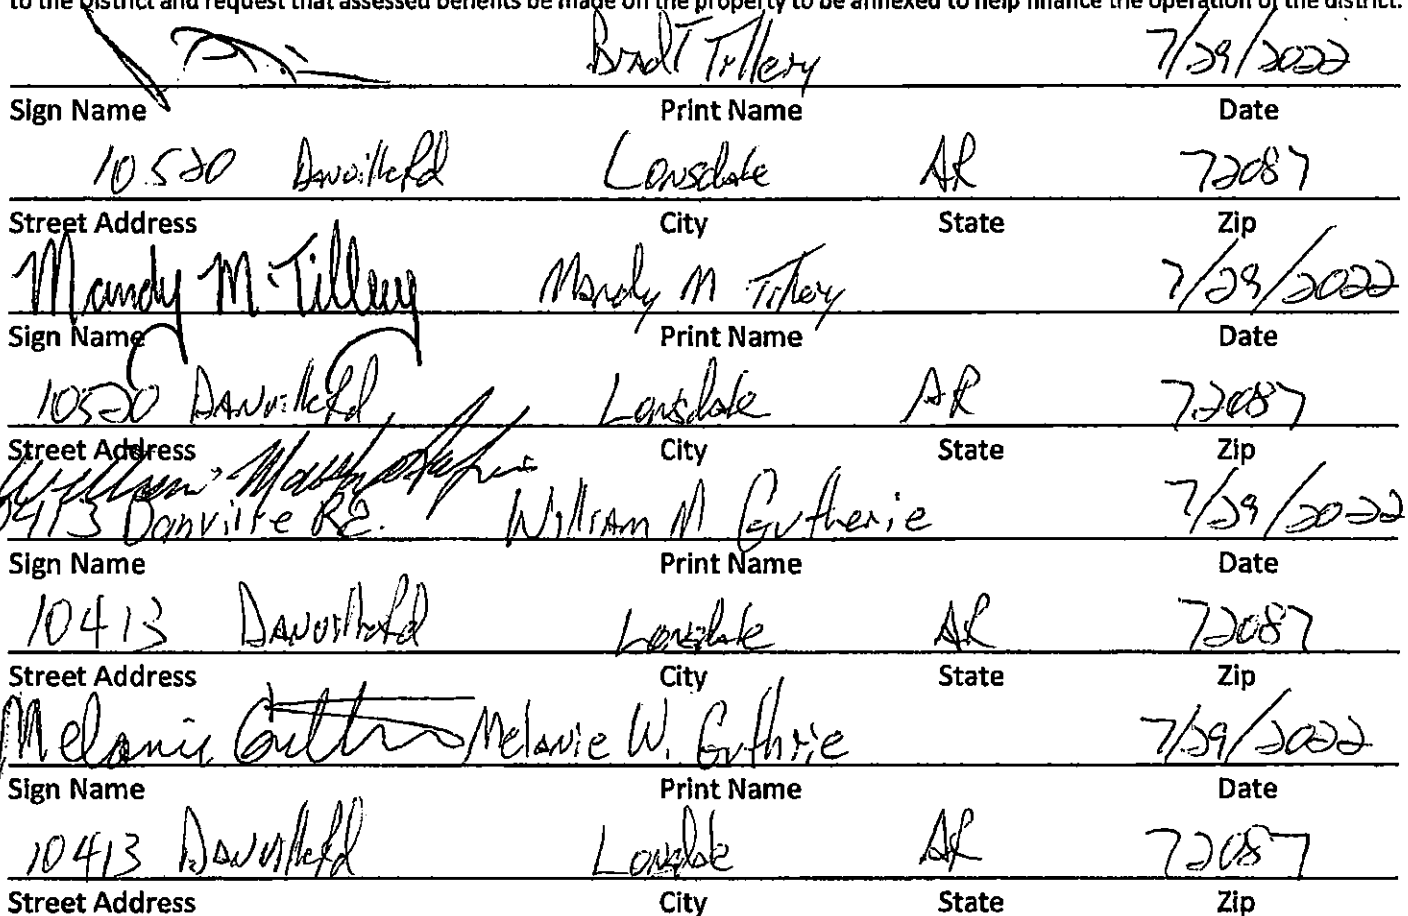 to the District and request that assessed benefits be made on the property to be annexed to help finance the operation of the district.
Brad T Tillery 7/29/2022
Sign Name Print Name Date
10520 Danville Rd Lonsdale AR 72087
Street Address City State Zip
Mandy M. Tillery Mandy M Tillery 7/29/2022
Sign Name Print Name Date
10520 Danville Rd Lonsdale AR 72087
Street Address City State Zip
William
10413 Danville Rd. William M Gutherie 7/29/2022
Sign Name Print Name Date
10413 Danville Rd Lonsdale AR 72087
Street Address City State Zip
Melanie Guthrie Melanie W. Guthrie 7/29/2022
Sign Name Print Name Date
10413 Danville Rd Lonsdale AR 72087
Street Address City State Zip